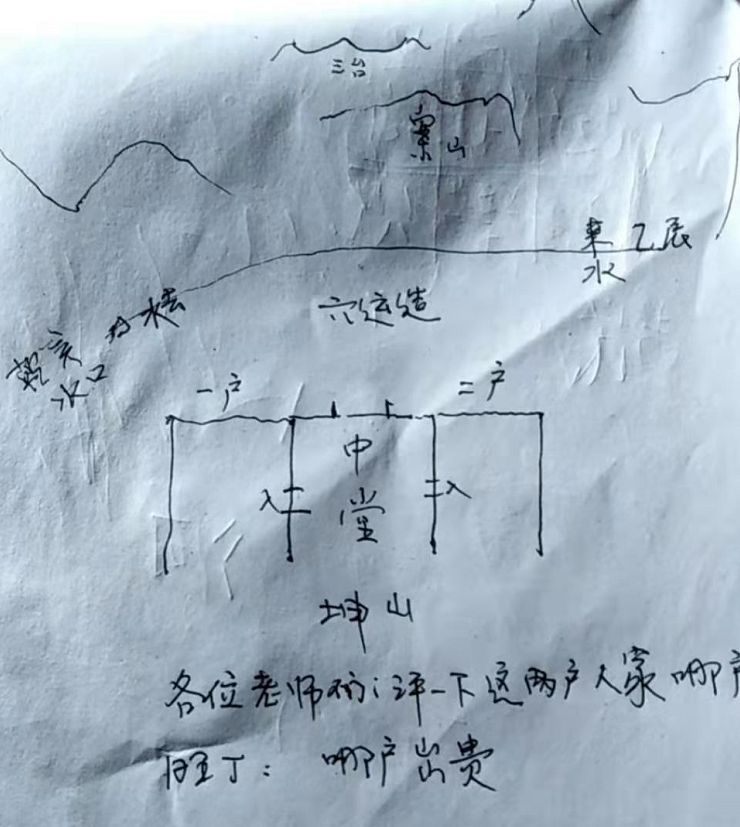 三台
案山
来 乙辰
水
水去
六运造
水口
一户
二户
中
入
入
堂
坤山
各位老师们:评一下这两户人家哪户
旺丁: 哪户出贵